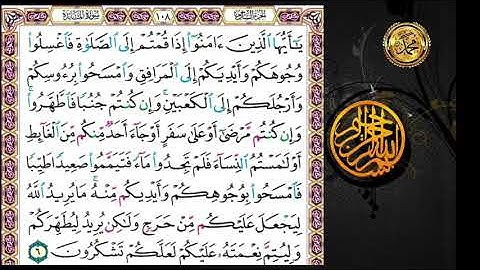 سُورَةُ المَائِدَةِ ١٠٨ الجُزْءُ السَّادِسُ
يَٰٓأَيُّهَا ٱلَّذِينَ ءَامَنُوٓا۟ إِذَا قُمْتُمْ إِلَى ٱلصَّلَوٰةِ فَٱغْسِلُوا۟
وُجُوهَكُمْ وَأَيْدِيَكُمْ إِلَى ٱلْمَرَافِقِ وَٱمْسَحُوا۟ بِرُءُوسِكُمْ
وَأَرْجُلَكُمْ إِلَى ٱلْكَعْبَيْنِ ۚ وَإِن كُنتُمْ جُنُبًا فَٱطَّهَّرُوا۟ ۚ
وَإِن كُنتُم مَّرْضَىٰٓ أَوْ عَلَىٰ سَفَرٍ أَوْ جَآءَ أَحَدٌ مِّنكُم مِّنَ ٱلْغَآئِطِ
أَوْ لَٰمَسْتُمُ ٱلنِّسَآءَ فَلَمْ تَجِدُوا۟ مَآءً فَتَيَمَّمُوا۟ صَعِيدًا طَيِّبًا
فَٱمْسَحُوا۟ بِوُجُوهِكُمْ وَأَيْدِيكُم مِّنْهُ ۚ مَا يُرِيدُ ٱللَّهُ
لِيَجْعَلَ عَلَيْكُم مِّنْ حَرَجٍ وَلَٰكِن يُرِيدُ لِيُطَهِّرَكُمْ
وَلِيُتِمَّ نِعْمَتَهُۥ عَلَيْكُمْ لَعَلَّكُمْ تَشْكُرُونَ ٦
محمد